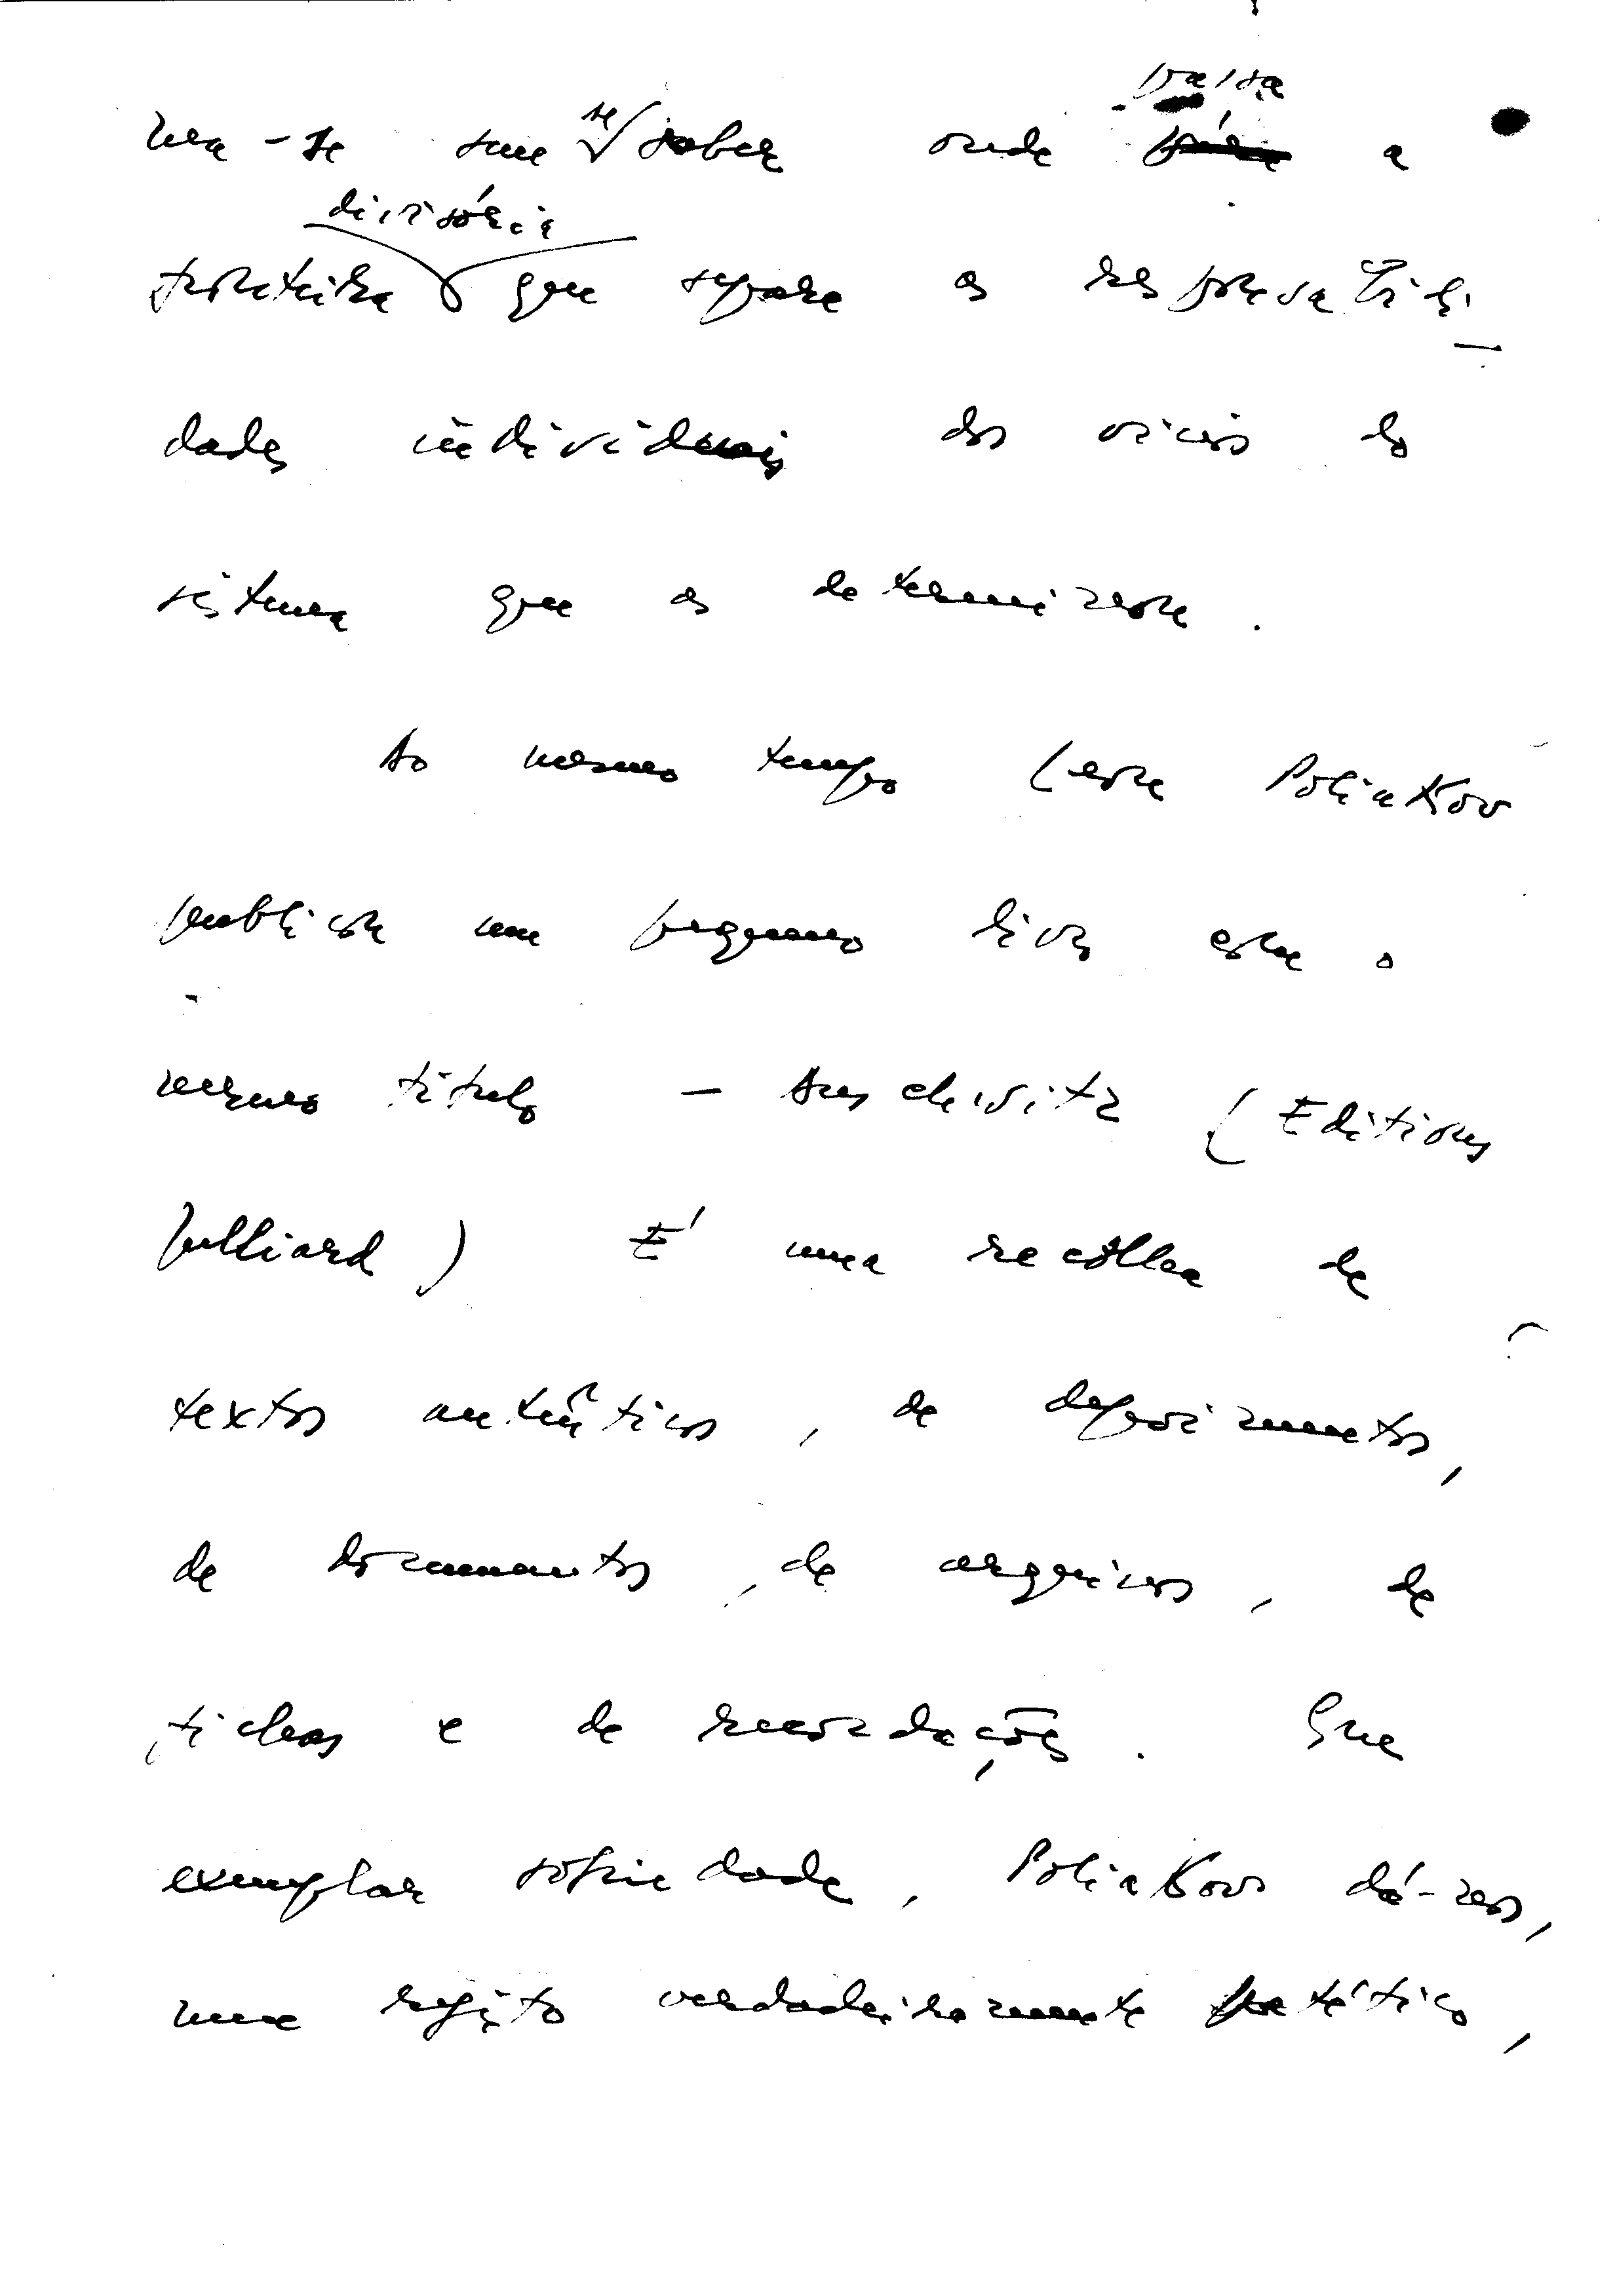 na-se sem se saber onde passa a
fronteira divisória que separa as responsabili-
dades individuais dos vícios do
sistema que as determinam.
Ao mesmo tempo Léon Poliakov
publicou um pequeno livro com o
mesmo título — Auschwitz (Editions
Julliard) É uma recolha de
textos autênticos, de depoimentos,
de documentos, de arquivos, de
fichas e de recordações. Com
exemplar sobriedade, Poliakov dá-nos,
num registo verdadeiramente patético,